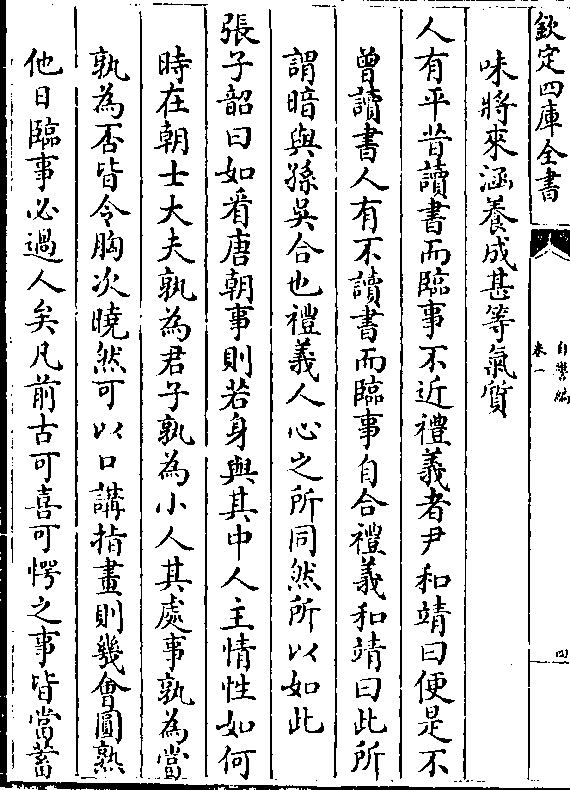 欽定四庫全書
自警編
卷一
四
味將來涵養成甚等氣質
人有平昔讀書而臨事不近禮義者尹和靖曰便是不
曾讀書人有不讀書而臨事自合禮義和靖曰此所
謂暗與孫吳合也禮義人心之所同然所以如此
張子韶曰如看唐朝事則若身與其中人主情性如何
時在朝士大夫孰為君子孰為小人其處事孰為當
孰為否皆令胸次曉然可以口講指畫則幾會圓熟
他日臨事必過人矣凡前古可喜可愕之事皆當蓄